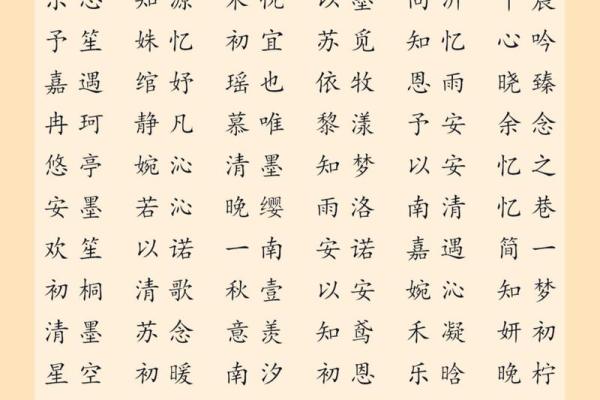 予笙 姝忆 初宜 苏觅 知忆 心吟
嘉遇 绾妤 瑶也 依牧 恩雨 晓臻
冉珂 静凡 慕唯 黎漾 予安 余念
悠亭 婉沁 清墨 知梦 以安 忆之
安墨 若沁 晚缨 雨洛 南清 忆巷
欢笙 以诺 一南 安诺 嘉遇 简一
初桐 清歌 秋壹 以安 婉沁 知梦
清墨 苏念 意羡 知鸢 禾凝 妍初
星空 初暖 南汐 初恩 乐晗 晚柠